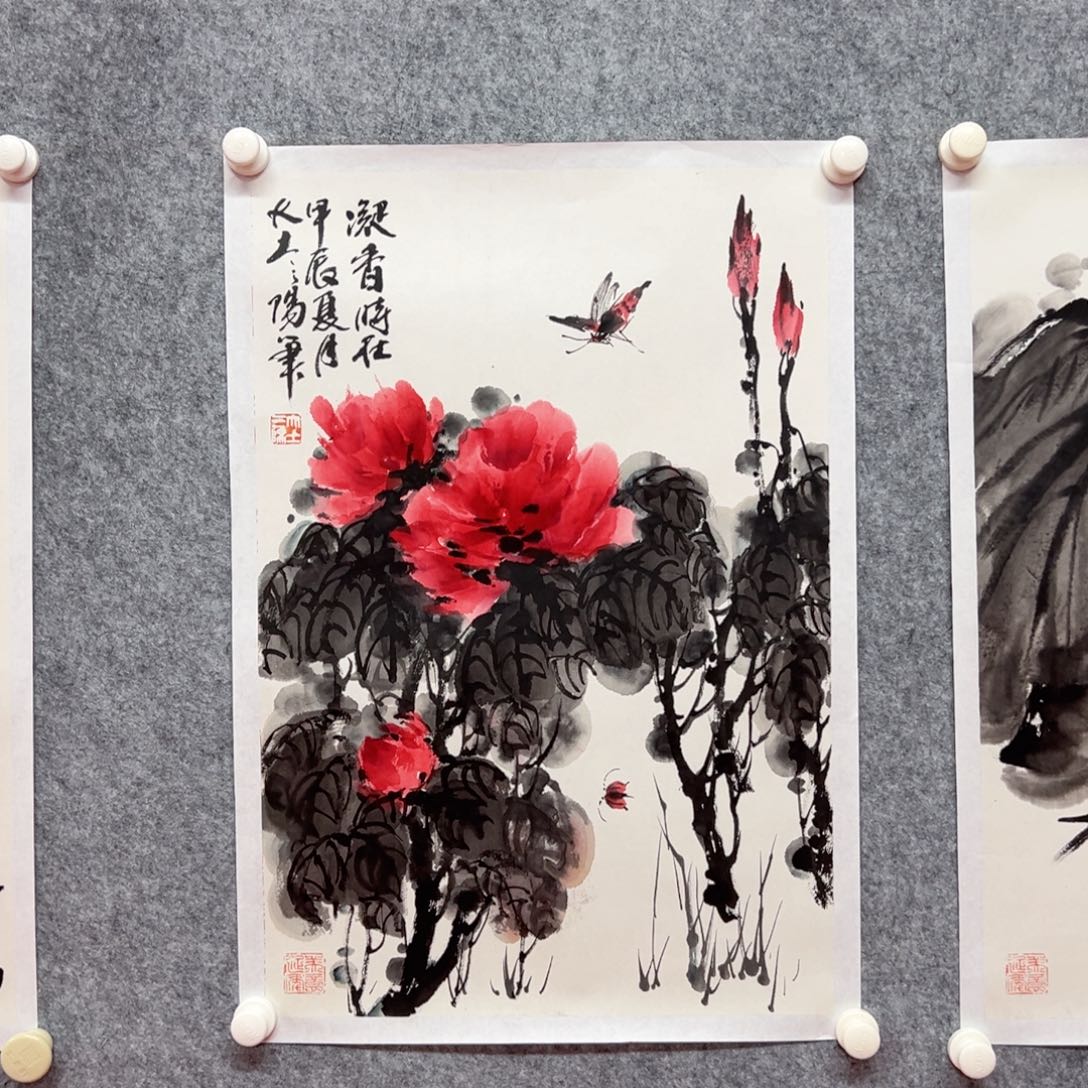 凝香時在
甲辰夏月
大土之陽筆